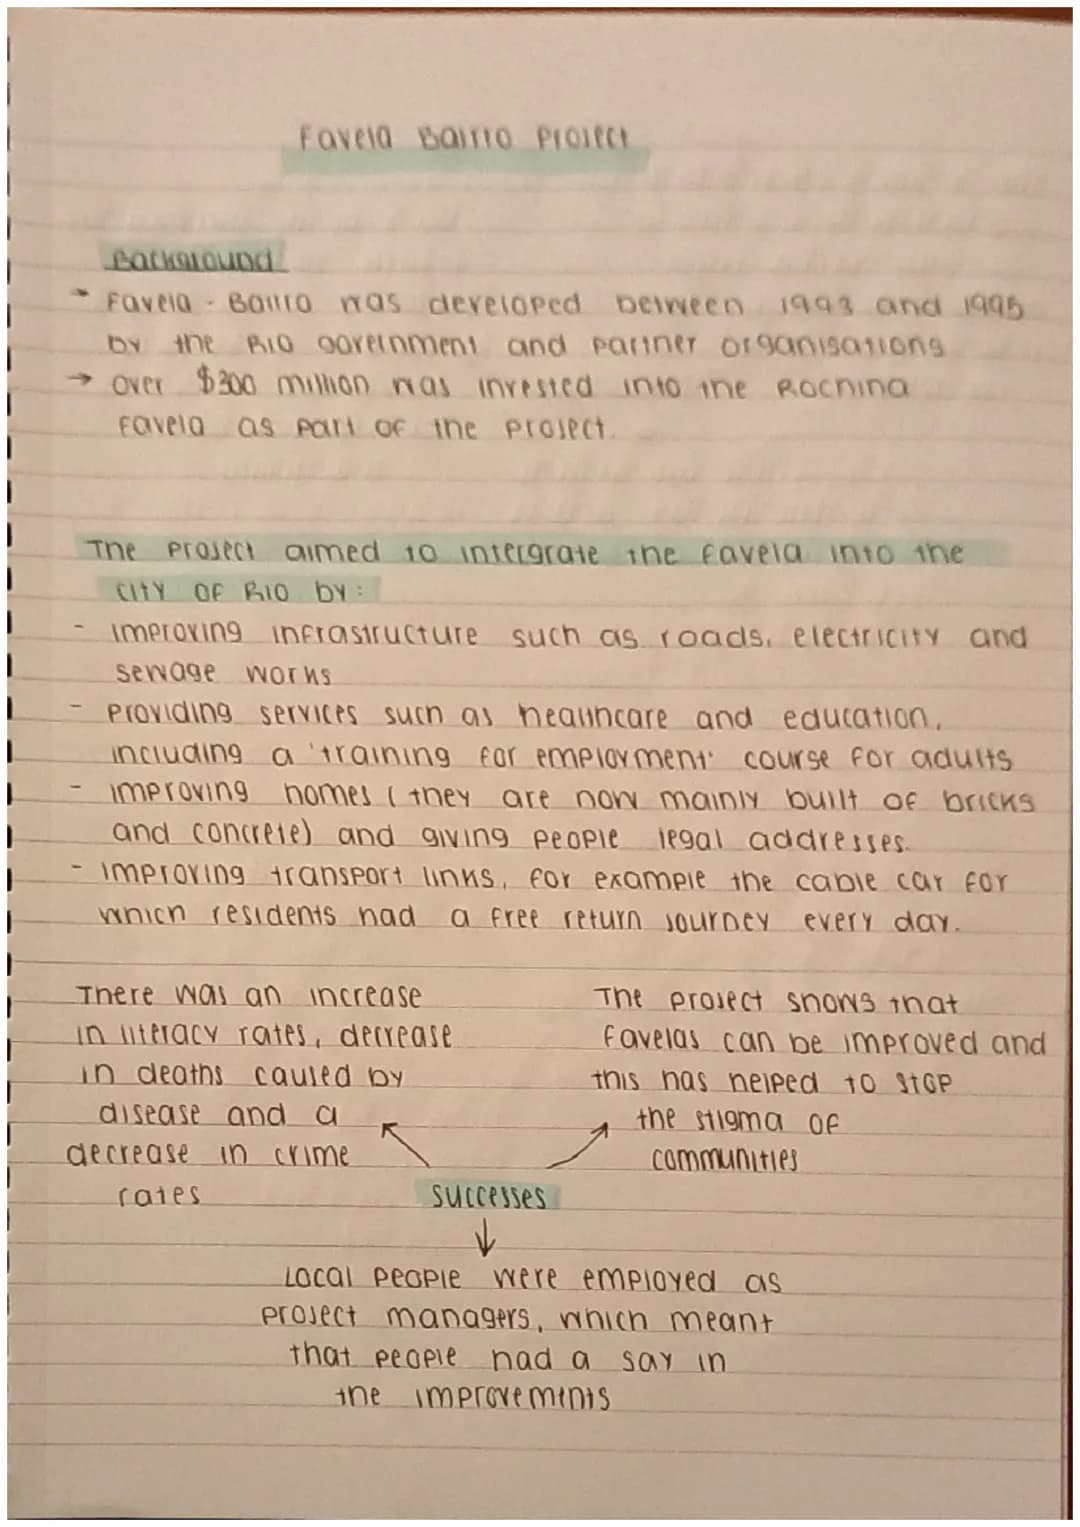 Favela Bairro Project
Background
→ Favela - Bairro was developed between 1993 and 1995
by the Rio government and partner organisations
→ over $300 million was invested into the Rochina
favela as part of the project.
The project aimed to intergrate the favela into the
city of Rio by:
- improving infrastructure such as roads, electricity and
sewage works
- providing services such as healthcare and education,
including a 'training for employment' course for adults
- improving homes (they are now mainly built of bricks
and concrete) and giving people legal addresses.
- improving transport links, for example the cable car for
which residents had a free return journey every day.
There was an increase
in literacy rates, decrease
in deaths caused by
disease and a
decrease in crime
rates
The project shows that
favelas can be improved and
this has helped to stop
the stigma of
communities
successes
Local people were employed as
project managers, which meant
that people had a say in
the improvements